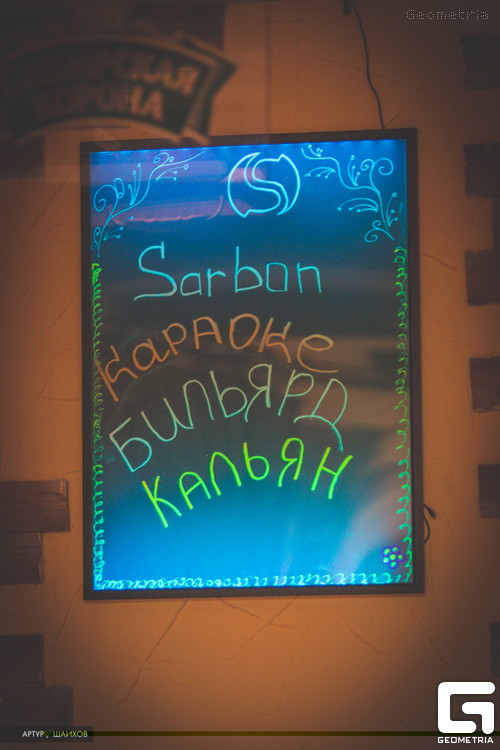 Geometria
КОРОНА
S
Sarbon
КАРАОКЕ
БИЛЬЯРД
КАЛЬЯН
АРТУР ШАИХОВ
GEOMETRIA